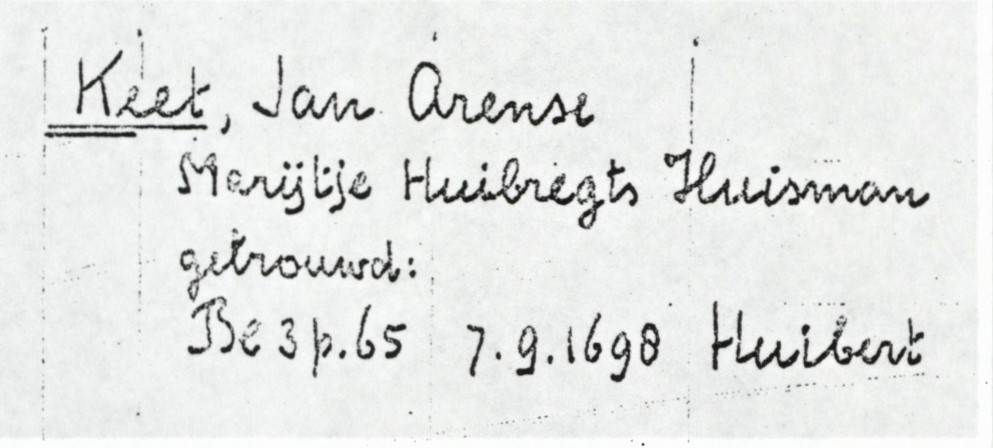 Keet, Jan Arense
Marijtje Huibregts Huisman
getrouwd:
Be 3 p. 65 7.9.1698 Huibert